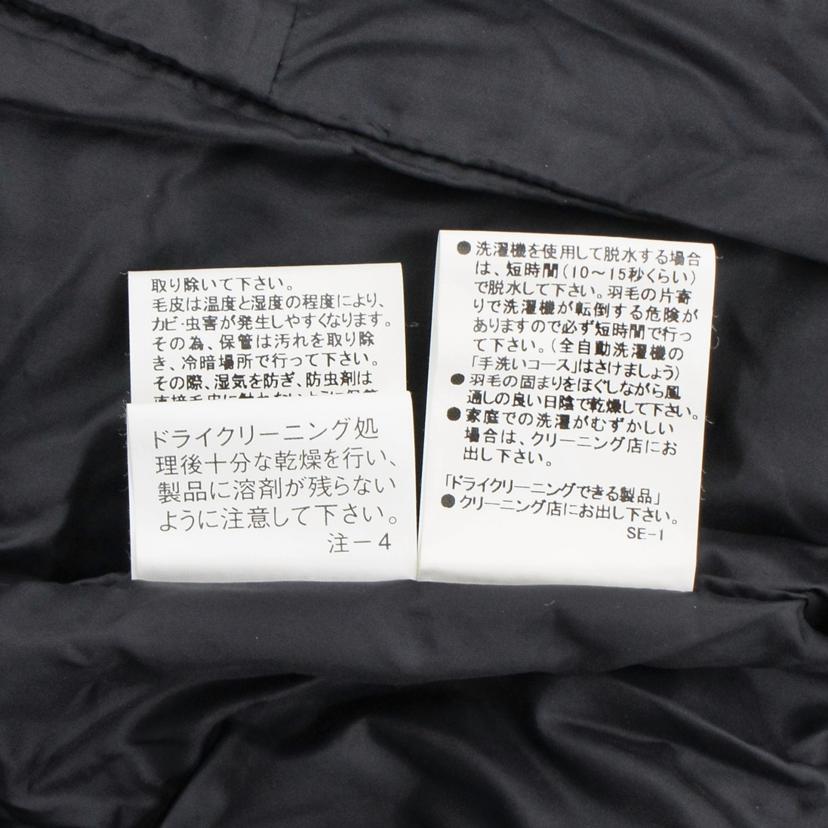 取り除いて下さい。
毛皮は温度と湿度の程度により、
カビ・虫害が発生しやすくなります。
その為、保管は汚れを取り除
き、冷暗場所で行って下さい。
その際、湿気を防ぎ、防虫剤は
ドライクリーニング処
理後十分な乾燥を行い、
製品に溶剤が残らない
ように注意して下さい。
注－4
●洗濯機を使用して脱水する場合
は、短時間(10～15秒くらい)
で脱水して下さい。羽毛の片寄
りで洗濯機が転倒する危険が
ありますので必ず短時間で行っ
て下さい。(全自動洗濯機の
「手洗いコース」はさけましょう)
●羽毛の固まりをほぐしながら風
通しの良い日陰で乾燥して下さい。
●家庭での洗濯がむずかしい
場合は、クリーニング店にお
出し下さい。
「ドライクリーニングできる製品」
●クリーニング店にお出し下さい。
SE-1